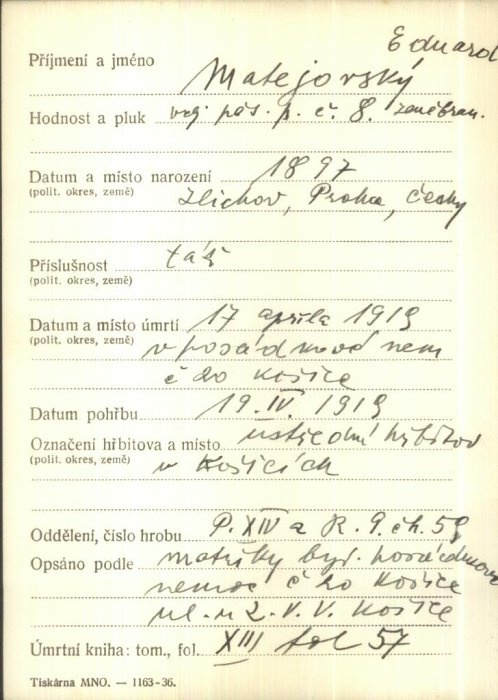 Eduard
Příjmení a jméno Matejovský
Hodnost a pluk voj. pěš. p. č. 8. zeměbran.
Datum a místo narození 1897
(polit. okres, země) Zlichov, Praha, Čechy
Příslušnost táž
(polit. okres, země)
Datum a místo úmrtí 17 aprila 1919
(polit. okres, země) v posádkové nem
č 20 Košice
Datum pohřbu 19. IV. 1919
Označení hřbitova a místo ústřední hřbitov
(polit. okres, země) v Košicích
Oddělení, číslo hrobu P. XIV a R. 9. čh. 59
Opsáno podle matriky byv. posádkové
nemoc č 20 Košice
ul. u Z. V. V. Košice
Úmrtní kniha: tom., fol. XIII fol 57
Tiskárna MNO. — 1163-36.